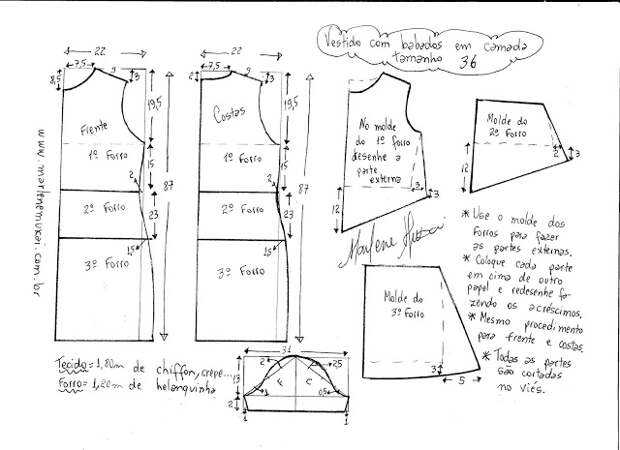 Vestido com babados em camada
tamanho 36
22
7,5
9
3
8,5
19,5
Frente
1º Forro
15
2
87
2º Forro
23
1,5
3º Forro
22
7,5
9
3
2
19,5
Costas
1º Forro
15
2
87
2º Forro
23
1,5
3º Forro
www.marlenemukai.com.br
No molde
do 1º forro
desenhe a
parte
externa
3
3
12
Molde do
2º Forro
2
3
12
Marlene Mukai
Molde do
3º Forro
3
5
* Use o molde dos
forros para fazer
as partes externas.
* Coloque cada parte
em cima de outro
papel e redesenhe fa-
zendo os acréscimos.
* Mesmo procedimento
para frente e costas.
* Todas as partes
são cortadas
no viés.
Tecido = 1,80m de chiffon, crepe...
Forro = 1,20m de helanquinha
31
2
2,5
13
F
C
0,5
2
1
1